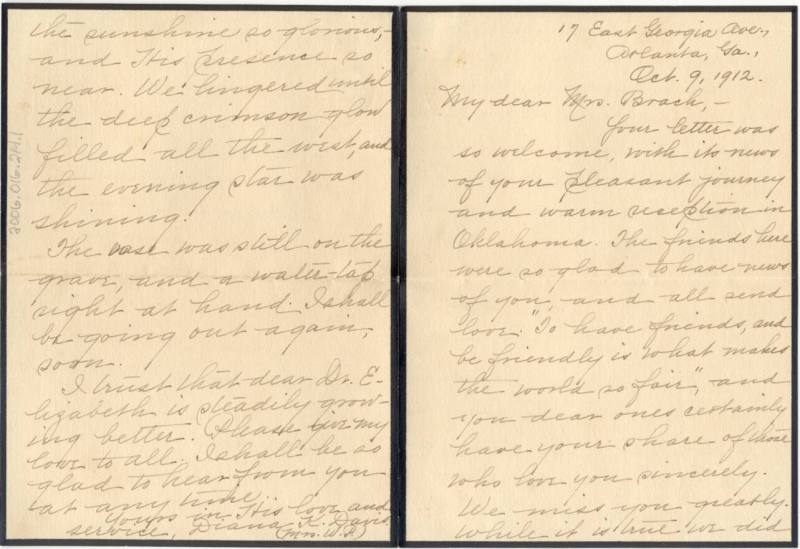 17 East Georgia Ave.,
Atlanta, Ga.,
Oct. 9, 1912.
My dear Mrs. Brach,-
Your letter was
so welcome, with its news
of your pleasant journey
and warm reception in
Oklahoma. The friends here
were so glad to have news
of you, and all send
love. "To have friends, and
be friendly is what makes
the world so fair", and
you dear ones certainly
have your share of those
who love you sincerely.
We miss you greatly.
While it is true we did
the sunshine so glorious,-
and His Presence so
near. We lingered until
the deep crimson glow
filled all the west, and
the evening star was
shining.
The vase was still on the
grave, and a water-tap
right at hand. I shall
be going out again,
soon.
I trust that dear Dr. E-
lizabeth is steadily grow-
ing better. Please give my
love to all. I shall be so
glad to hear from you
at any time.
Yours in His love and
service, Diana K. Davis
(Mrs. W. A.)
2006.016.2H.1